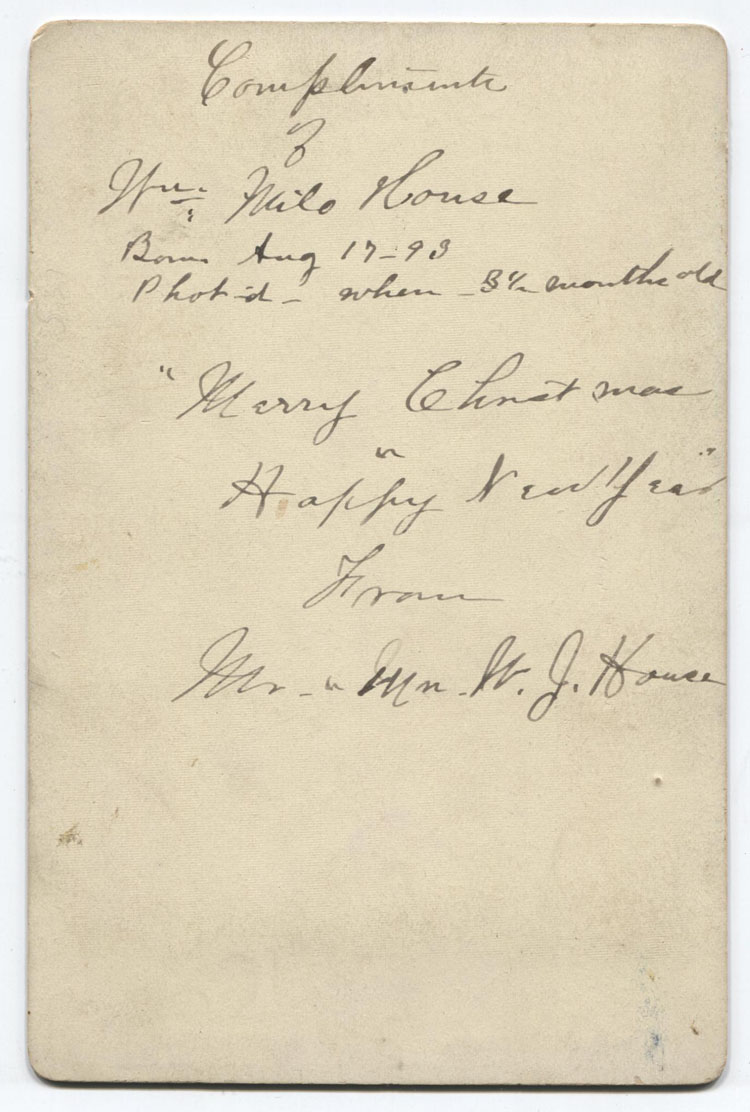 Compliments
of
Wm. Milo House
Born Aug 17-93
Phot-d- when - 3½ months old
"Merry Christmas
"
Happy New Year"
From
Mr - " Mrs. W. J. House